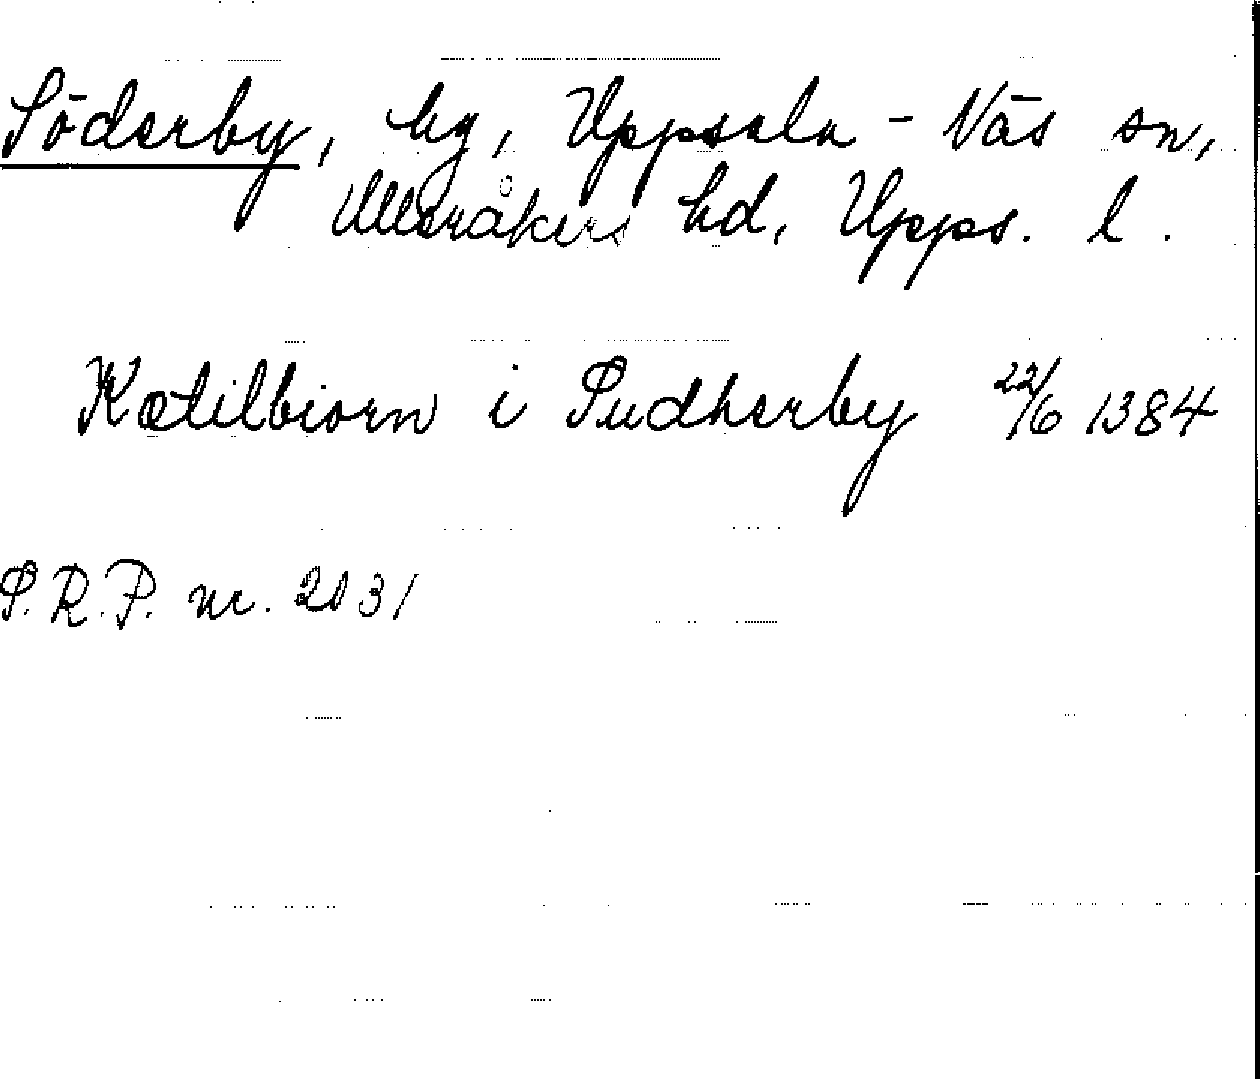 Söderby, by, Uppsala-Näs sn,
Ulleråkers hd, Upps. l.
Kætilbiorn i Sudherby 22/6 1384
S.R.P. nr. 2031